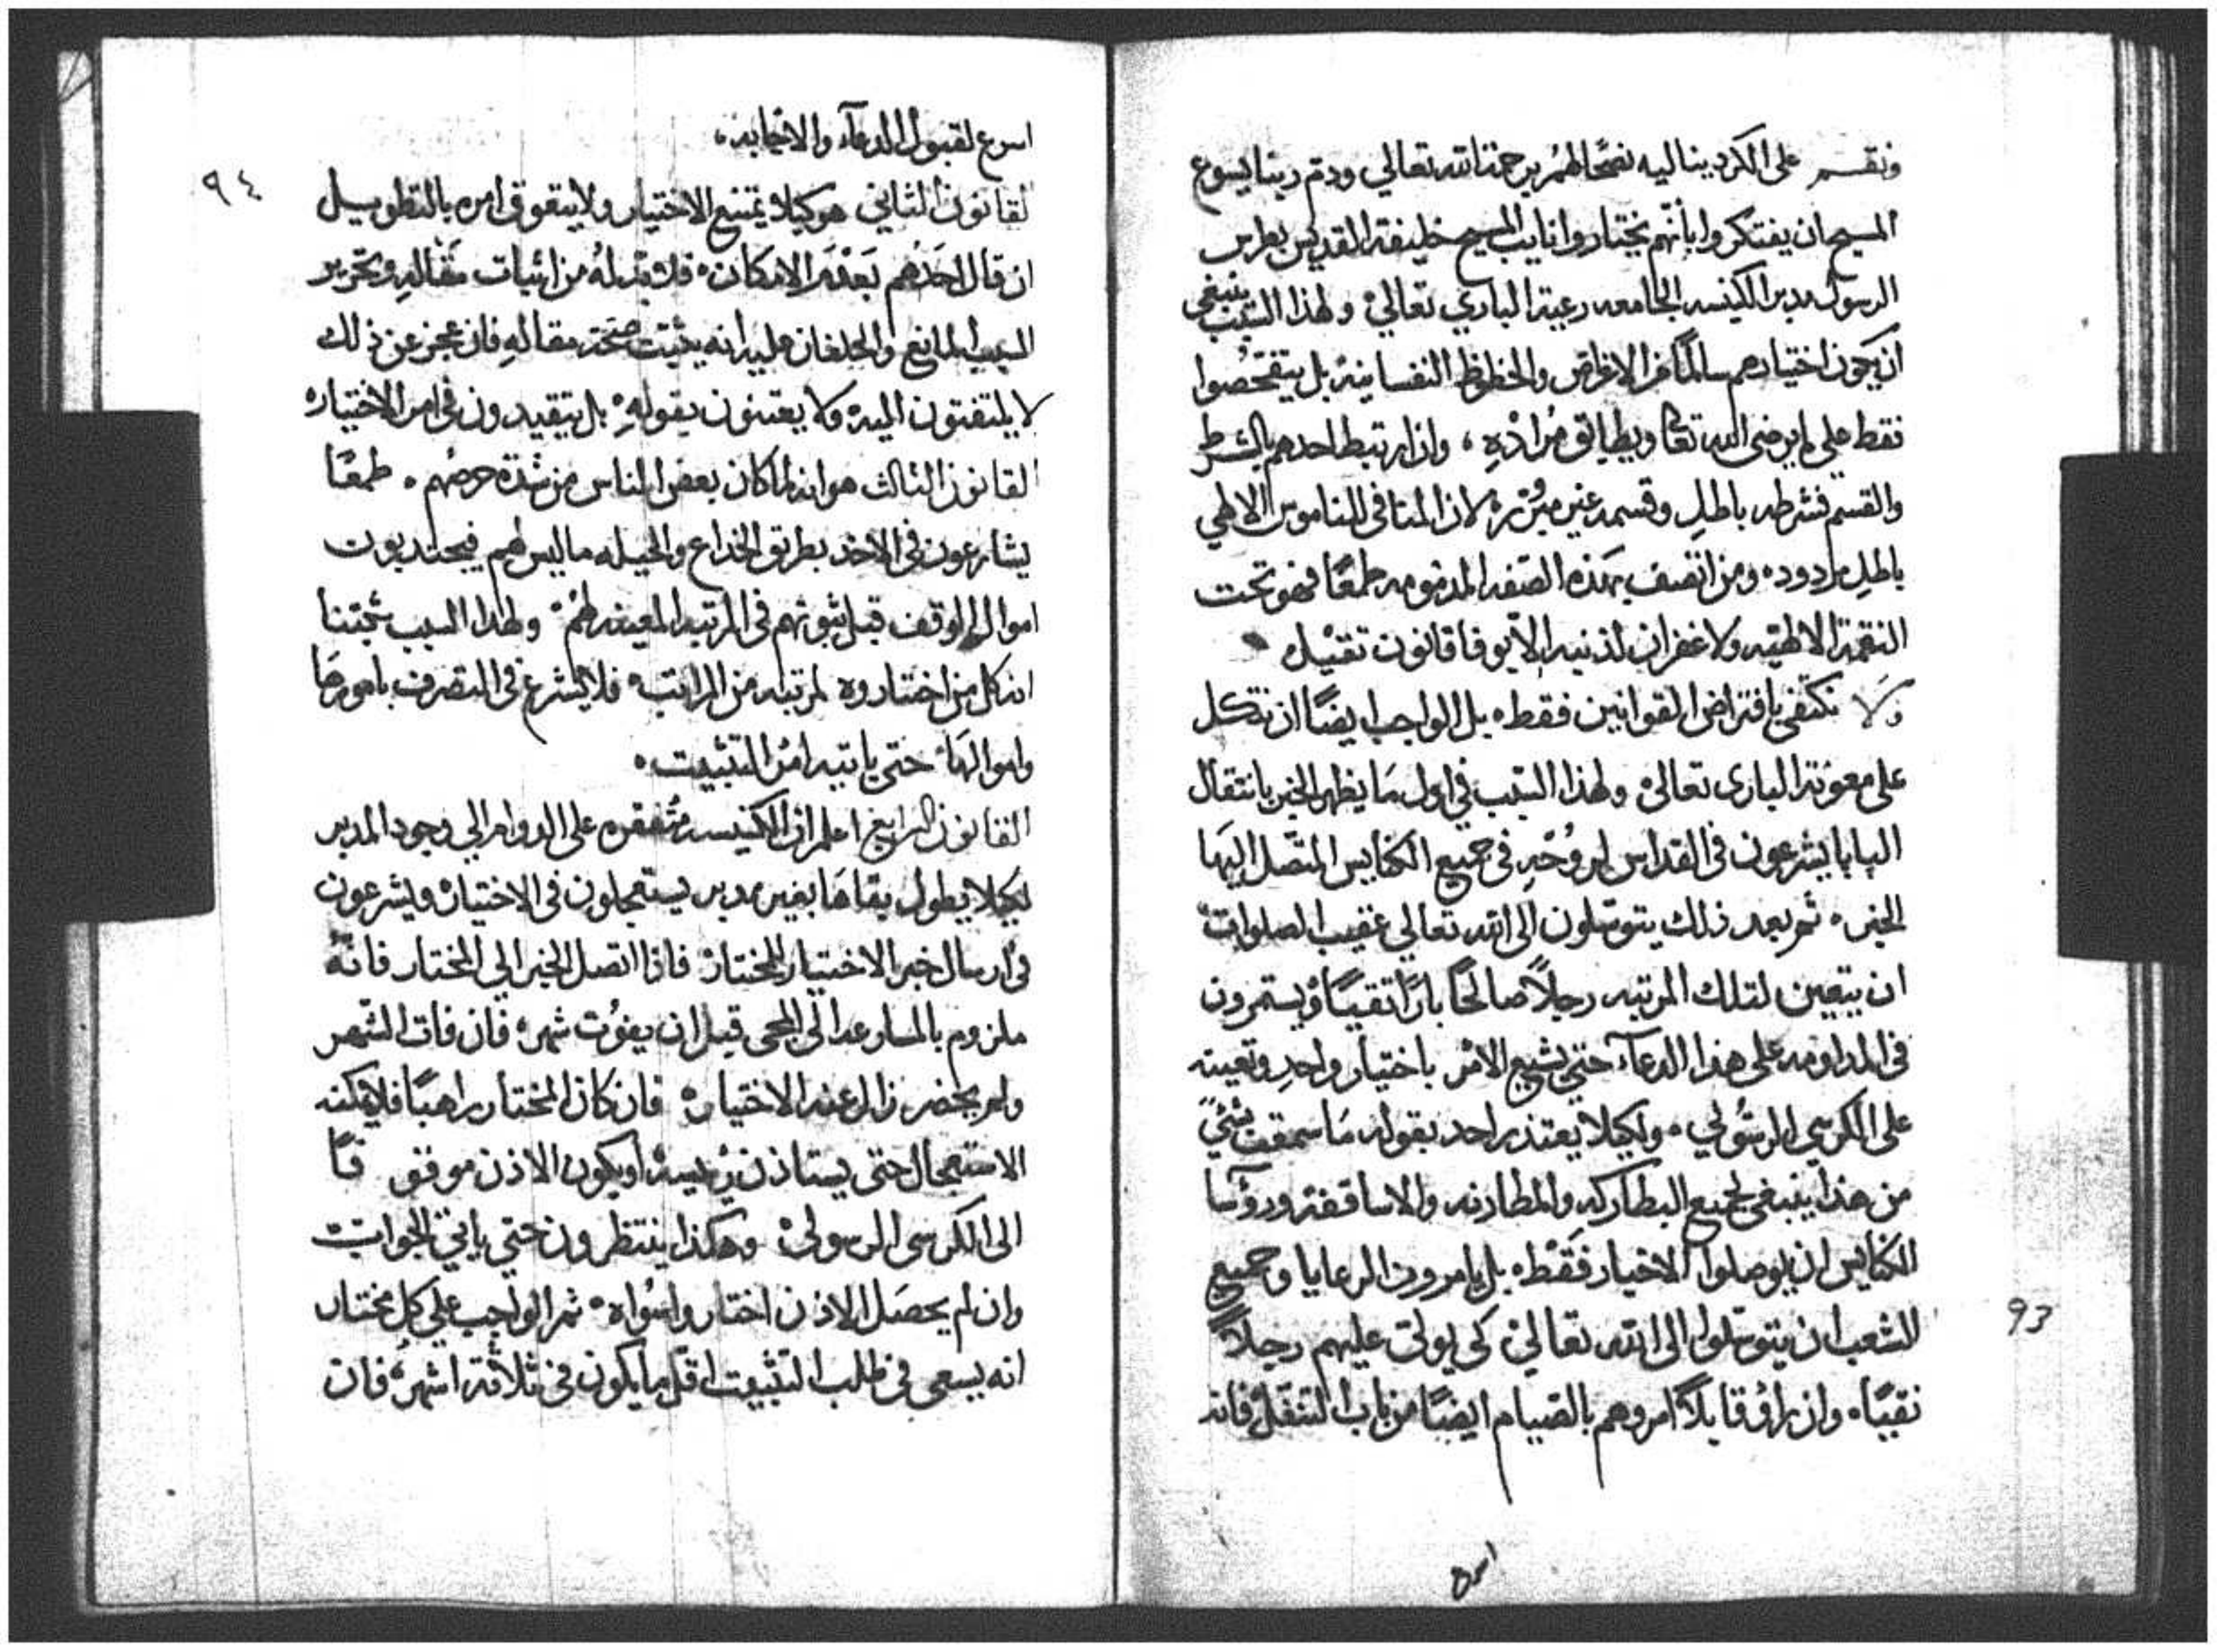 ونقسم على الكرديناليه نصحًا لهم برحمة الله تعالي ودم ربنا يسوع
المسيح ان يفتكروا بأنهم يختاروا نايب المسيح خليفة القديس بطرس
الرسول مدبر الكنيسه الجامعه رعية الباري تعالي ولهذا السبب ينبغي
ان يكون اختيارهم سالمًا من الاغراض والحظوظ النفسانيه بل يتفحصوا
فقط علي ما يرضى الله تعالى ويطابق مراده، وان ارتبط احدهم بالشرط
والقسم فشرطه باطل وقسمه غير مبرّر لان المنافى الناموس الالهي
باطل مردود، ومن اتصف بهذه الصفه المذمومه طمعًا فهو تحت
النقمة الالهيه ولا غفران لذنبه الا بوفا قانون ثقيل
ولا نكتفي بافتراض القوانين فقط، بل الواجب ايضًا ان نتكل
على معونة البارى تعالى ولهذا السبب في اول ما يظهر الخبر بانتقال
البابا يشرعون في القداس لروحه في جميع الكنايس المتصل اليها
الخبر، ثم بعد ذلك يتوسلون الى الله تعالي عقيب الصلوات
ان يتعين لتلك المرتبه رجلاً صالحًا بارًا تقيًا ويستمرون
في المداومه على هذا الدعاء حتي يشيع الامر باختيار واحد وتعينه
على الكرسي الرسولي، ولكيلا يعتذر احد بقوله ما سمعت بشئ
من هذا ينبغي لجميع البطاركه والمطارنه والاساقفة ورؤسا
الكنايس ان يوصلوا الاخبار فقط، بل يامرون الرعايا وجميع
الشعب ان يتوسلوا الى الله تعالي كي يولي عليهم رجلاً
نقيًا، وان راؤ قابلاً امروهم بالصيام ايضًا من باب التنفل فانه
اسرع
93
اسرع لقبول الدعاء والاجابه،
٩٤
القانون الثاني هو كيلا يمتنع الاختيار ولا يتعوق امره بالتطويل
ان قال احدهم بعدم الامكان، فلا بد له من اثبات مقاله وتحرير
السبب المانع والحلفان عليه انه يثبت صحة مقاله فان عجز عن ذلك
لا يلتفتون اليه ولا يعتنون بقوله، بل يتقيدون في امر الاختيار
القانون الثالث هو انه لما كان بعض الناس من شدة حرصهم، طمعًا
يشارعون في الاخذ بطريق الخداع والحيله ما ليس لهم فيجتذبون
اموال الوقف قبل ثبوتهم في المرتبه المعينه لهم، ولهذا السبب
ان كل من اختاروه لمرتبه من المراتب، فلا يشرع في التصرف بامورها
واموالها، حتى ياتيه امر التثبيت،
القانون الرابع اعلم ان الكنيسه مفتقره على الدوام الي وجود المدبر
لكيلا يطول بقاها بغير مدبر يستعجلون في الاختيار ويشرعون
في ارسال خبر الاختيار للمختار، فاذا اتصل الخبر الي المختار فانه
ملزوم بالمسارعه الى المجى قبل ان يفوت شهر، فان فات الشهر
ولم يحضر زال عنه الاختيار، فان كان المختار راهبًا فلا يمكنه
الاستعجال حتى يستاذن رئيسه او يكون الاذن موفوقًا
الى الكرسى الرسولى، وهكذا ينتظرون حتي ياتي الجواب
وان لم يحصل الاذن اختاروا سواه، ثم الواجب علي كل مختار
انه يسعى في طلب التثبيت اقل ما يكون في ثلاثة اشهر، فان